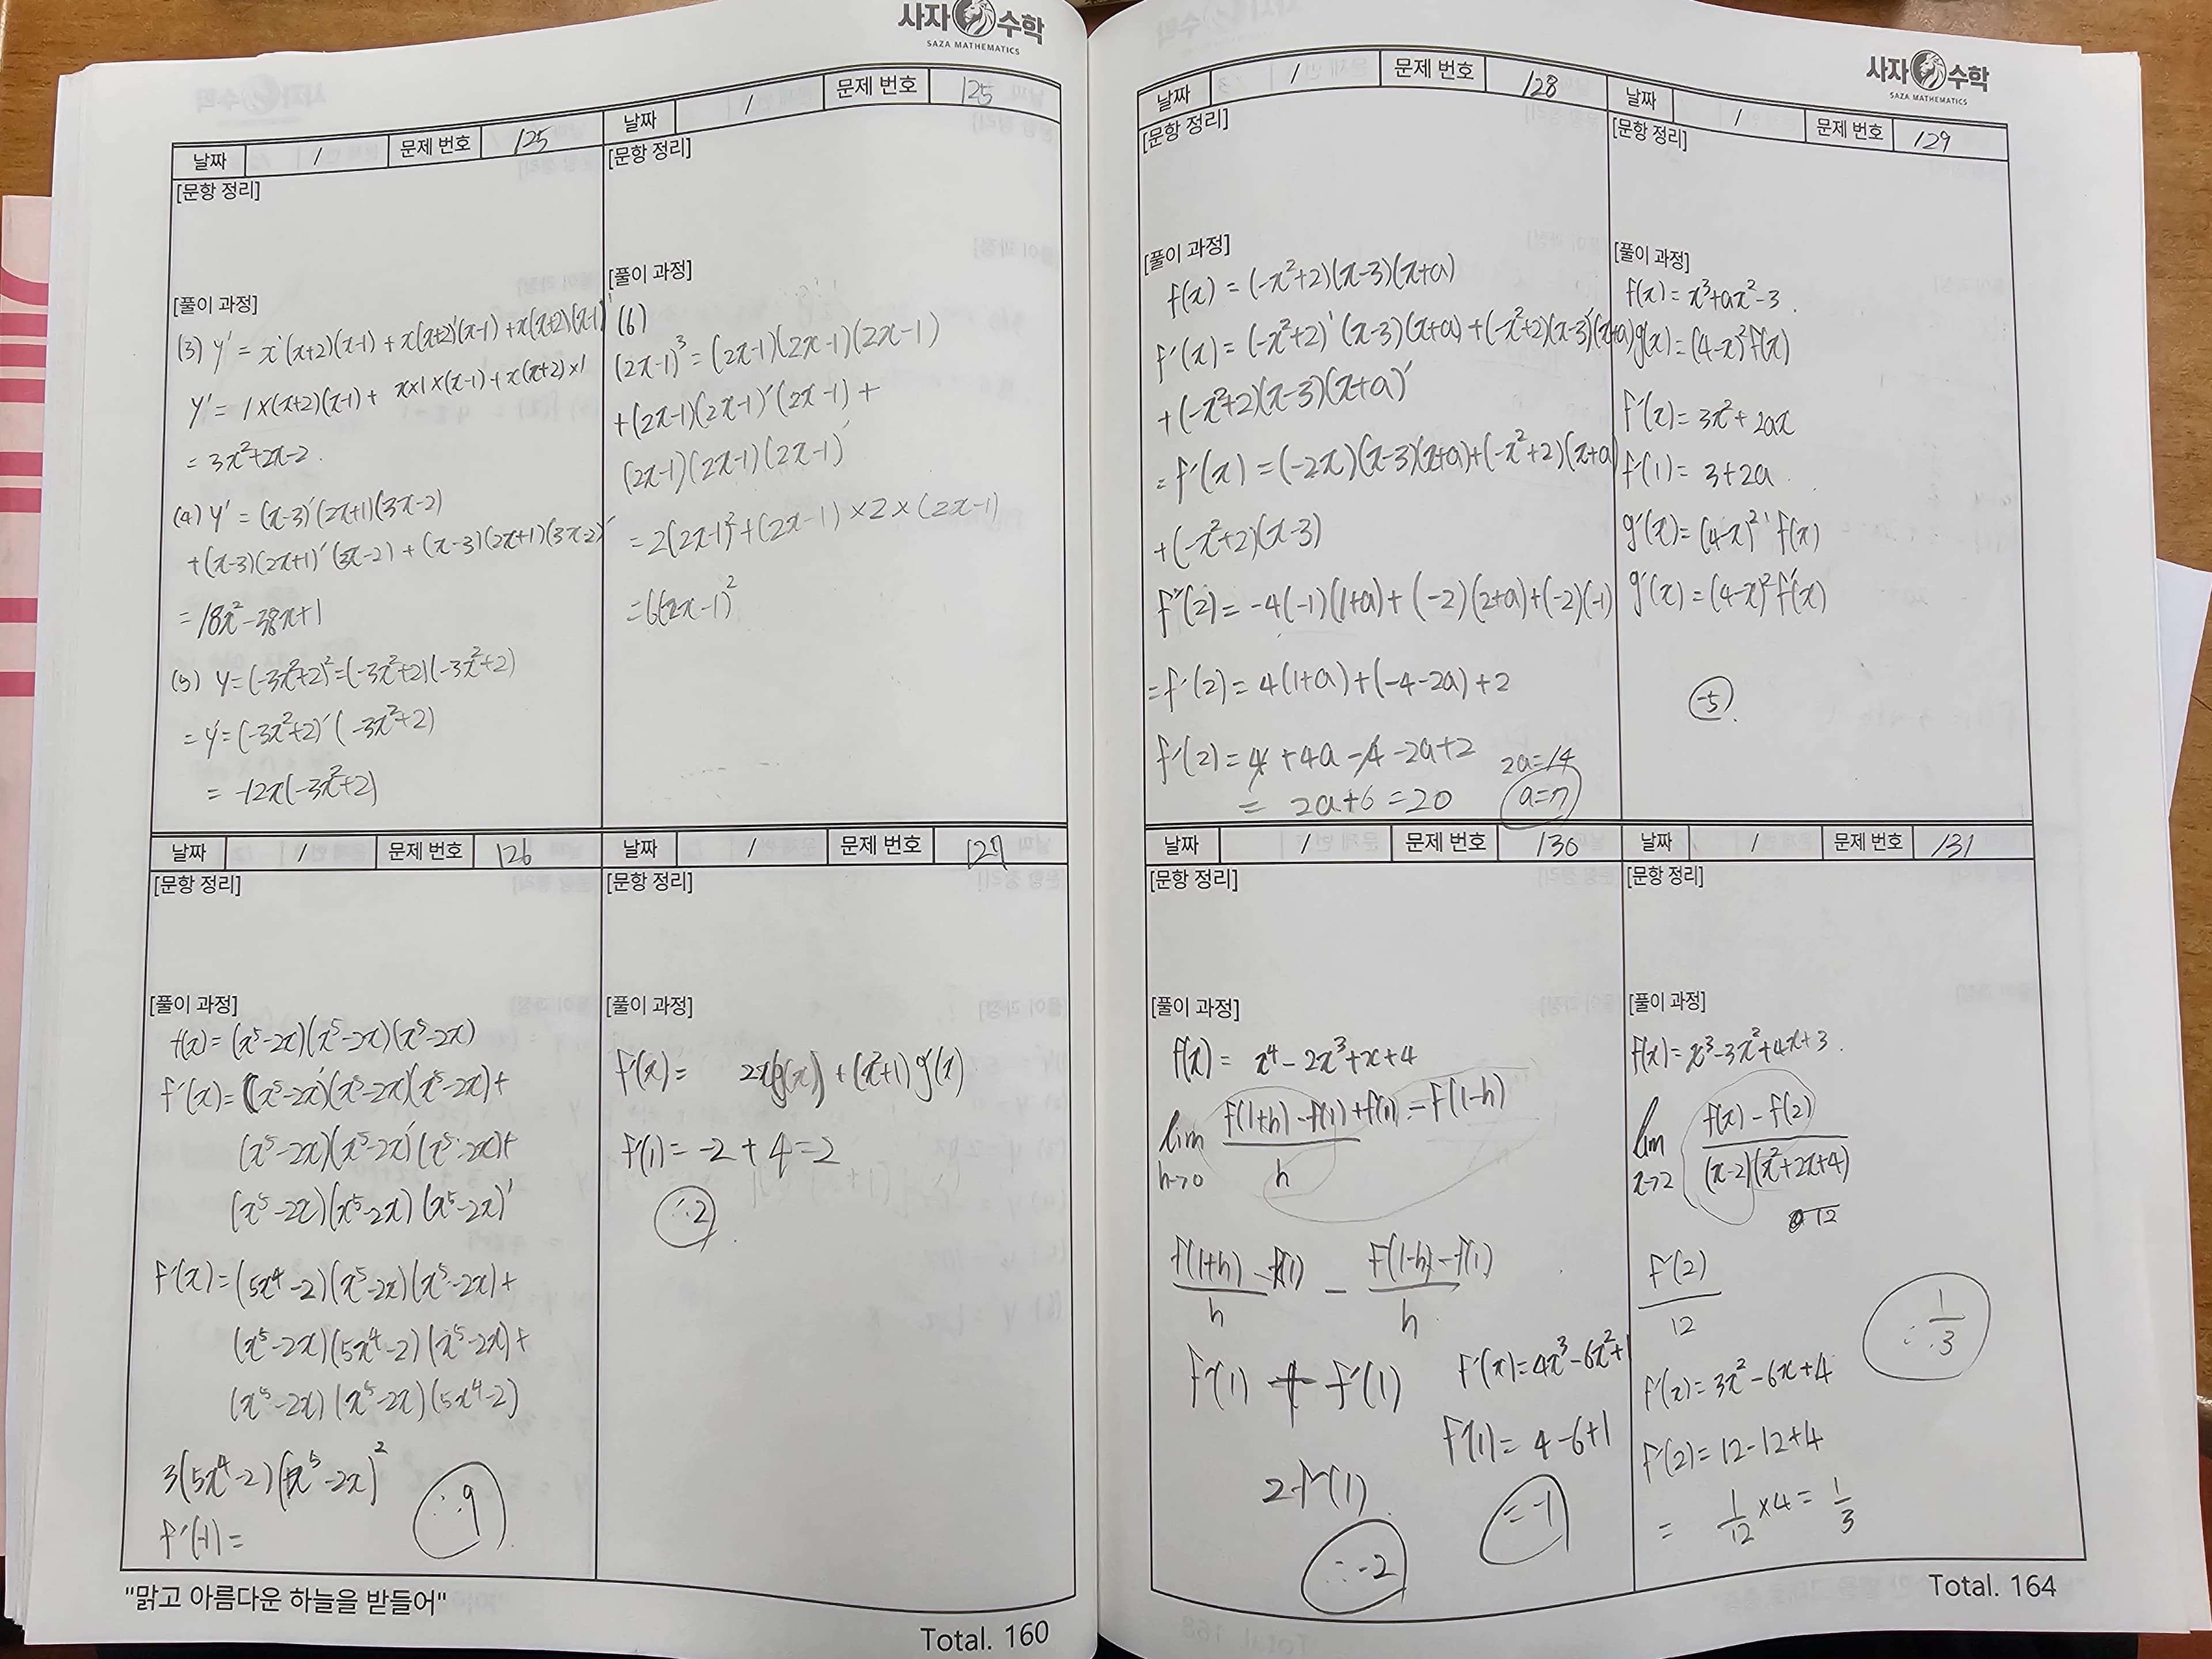 사자 수학
SAZA MATHEMATICS
날짜 / 문제 번호 125
[문항 정리]
[풀이 과정]
(3) y' = x'(x+2)(x-1) + x(x+2)'(x-1) + x(x+2)(x-1)'
y' = 1×(x+2)(x-1) + x×1×(x-1) + x(x+2)×1
= 3x²+2x-2.
(4) y' = (x-3)'(2x+1)(3x-2)
+(x-3)(2x+1)'(3x-2) + (x-3)(2x+1)(3x-2)'
= 18x²-38x+1
(5) y=(-3x²+2)²=(-3x²+2)(-3x²+2)
= y'=(-3x²+2)'(-3x²+2)
= -12x(-3x²+2)
날짜 / 문제 번호 125
[문항 정리]
[풀이 과정]
(6)
(2x-1)³=(2x-1)(2x-1)(2x-1)
+(2x-1)(2x-1)'(2x-1)+
(2x-1)(2x-1)(2x-1)'
=2(2x-1)²+(2x-1)×2×(2x-1)
=6(2x-1)²
날짜 / 문제 번호 126
[문항 정리]
[풀이 과정]
f(x)=(x⁵-2x)(x⁵-2x)(x⁵-2x)
f'(x)=(x⁵-2x)'(x⁵-2x)(x⁵-2x)+
(x⁵-2x)(x⁵-2x)'(x⁵-2x)+
(x⁵-2x)(x⁵-2x)(x⁵-2x)'
f'(x)=(5x⁴-2)(x⁵-2x)(x⁵-2x)+
(x⁵-2x)(5x⁴-2)(x⁵-2x)+
(x⁵-2x)(x⁵-2x)(5x⁴-2)
3(5x⁴-2)(x⁵-2x)²
f'(-1)=
∴9
날짜 / 문제 번호 127
[문항 정리]
[풀이 과정]
f'(x)= 2x(g(x)) + (x²+1)g'(x)
f'(1)=-2+4=2
∴2
"맑고 아름다운 하늘을 받들어"
Total. 160
사자 수학
SAZA MATHEMATICS
날짜 / 문제 번호 128
[문항 정리]
[풀이 과정]
f(x)=(-x²+2)(x-3)(x+a)
f'(x)=(-x²+2)'(x-3)(x+a)+(-x²+2)(x-3)'(x+a)
+(-x²+2)(x-3)(x+a)'
=f'(x)=(-2x)(x-3)(x+a)+(-x²+2)(x+a)
+(-x²+2)(x-3)
f'(2)=-4(-1)(1+a)+(-2)(2+a)+(-2)(-1)
=f'(2)=4(1+a)+(-4-2a)+2
f'(2)=4+4a-4-2a+2
= 2a+6=20
2a=14
a=7
날짜 / 문제 번호 129
[문항 정리]
[풀이 과정]
f(x)=x³+ax²-3.
g(x)=(4-x)²f(x)
f'(x)=3x²+2ax
f'(1)=3+2a
g'(x)=(4-x)²' f(x)
g'(x)=(4-x)²f'(x)
-5.
날짜 / 문제 번호 130
[문항 정리]
[풀이 과정]
f(x)= x⁴-2x³+x+4
lim h→0 f(1+h)-f(1)+f(1)-f(1-h) / h
f(1+h)-f(1) / h - f(1-h)-f(1) / h
f'(1) + f'(1)
2f'(1)
∴-2
f'(x)=4x³-6x²+1
f'(1)=4-6+1
=-1
날짜 / 문제 번호 131
[문항 정리]
[풀이 과정]
f(x)=x³-3x²+4x+3.
lim x→2 f(x)-f(2) / (x-2)(x²+2x+4)
12
f'(2) / 12
∴1/3
f'(x)=3x²-6x+4
f'(2)=12-12+4
= 1/12 ×4= 1/3
Total. 164